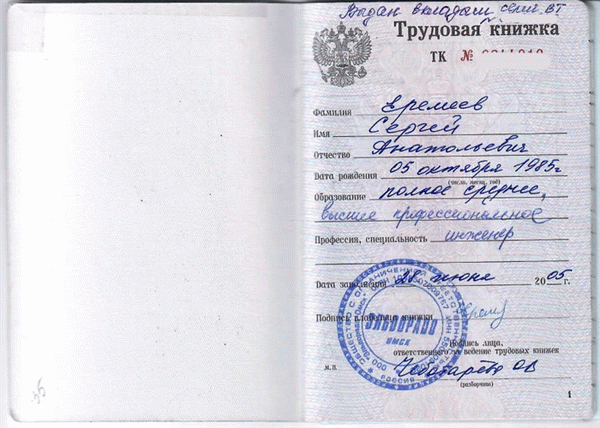 Выдан вкладыш серии ВТ
Трудовая книжка
ТК №
Фамилия Еремеев
Имя Сергей
Отчество Анатольевич
Дата рождения 05 октября 1985г
(число, месяц, год)
Образование полное среднее,
высшее профессиональное
Профессия, специальность инженер
Дата заполнения 28 июня 2005 г.
Подпись владельца книжки
ЭЛЬДОРАДО
ОМСК
Подпись лица,
ответственного за ведение трудовых книжек
м. п. Чеботарева ОВ
(разборчиво)
1